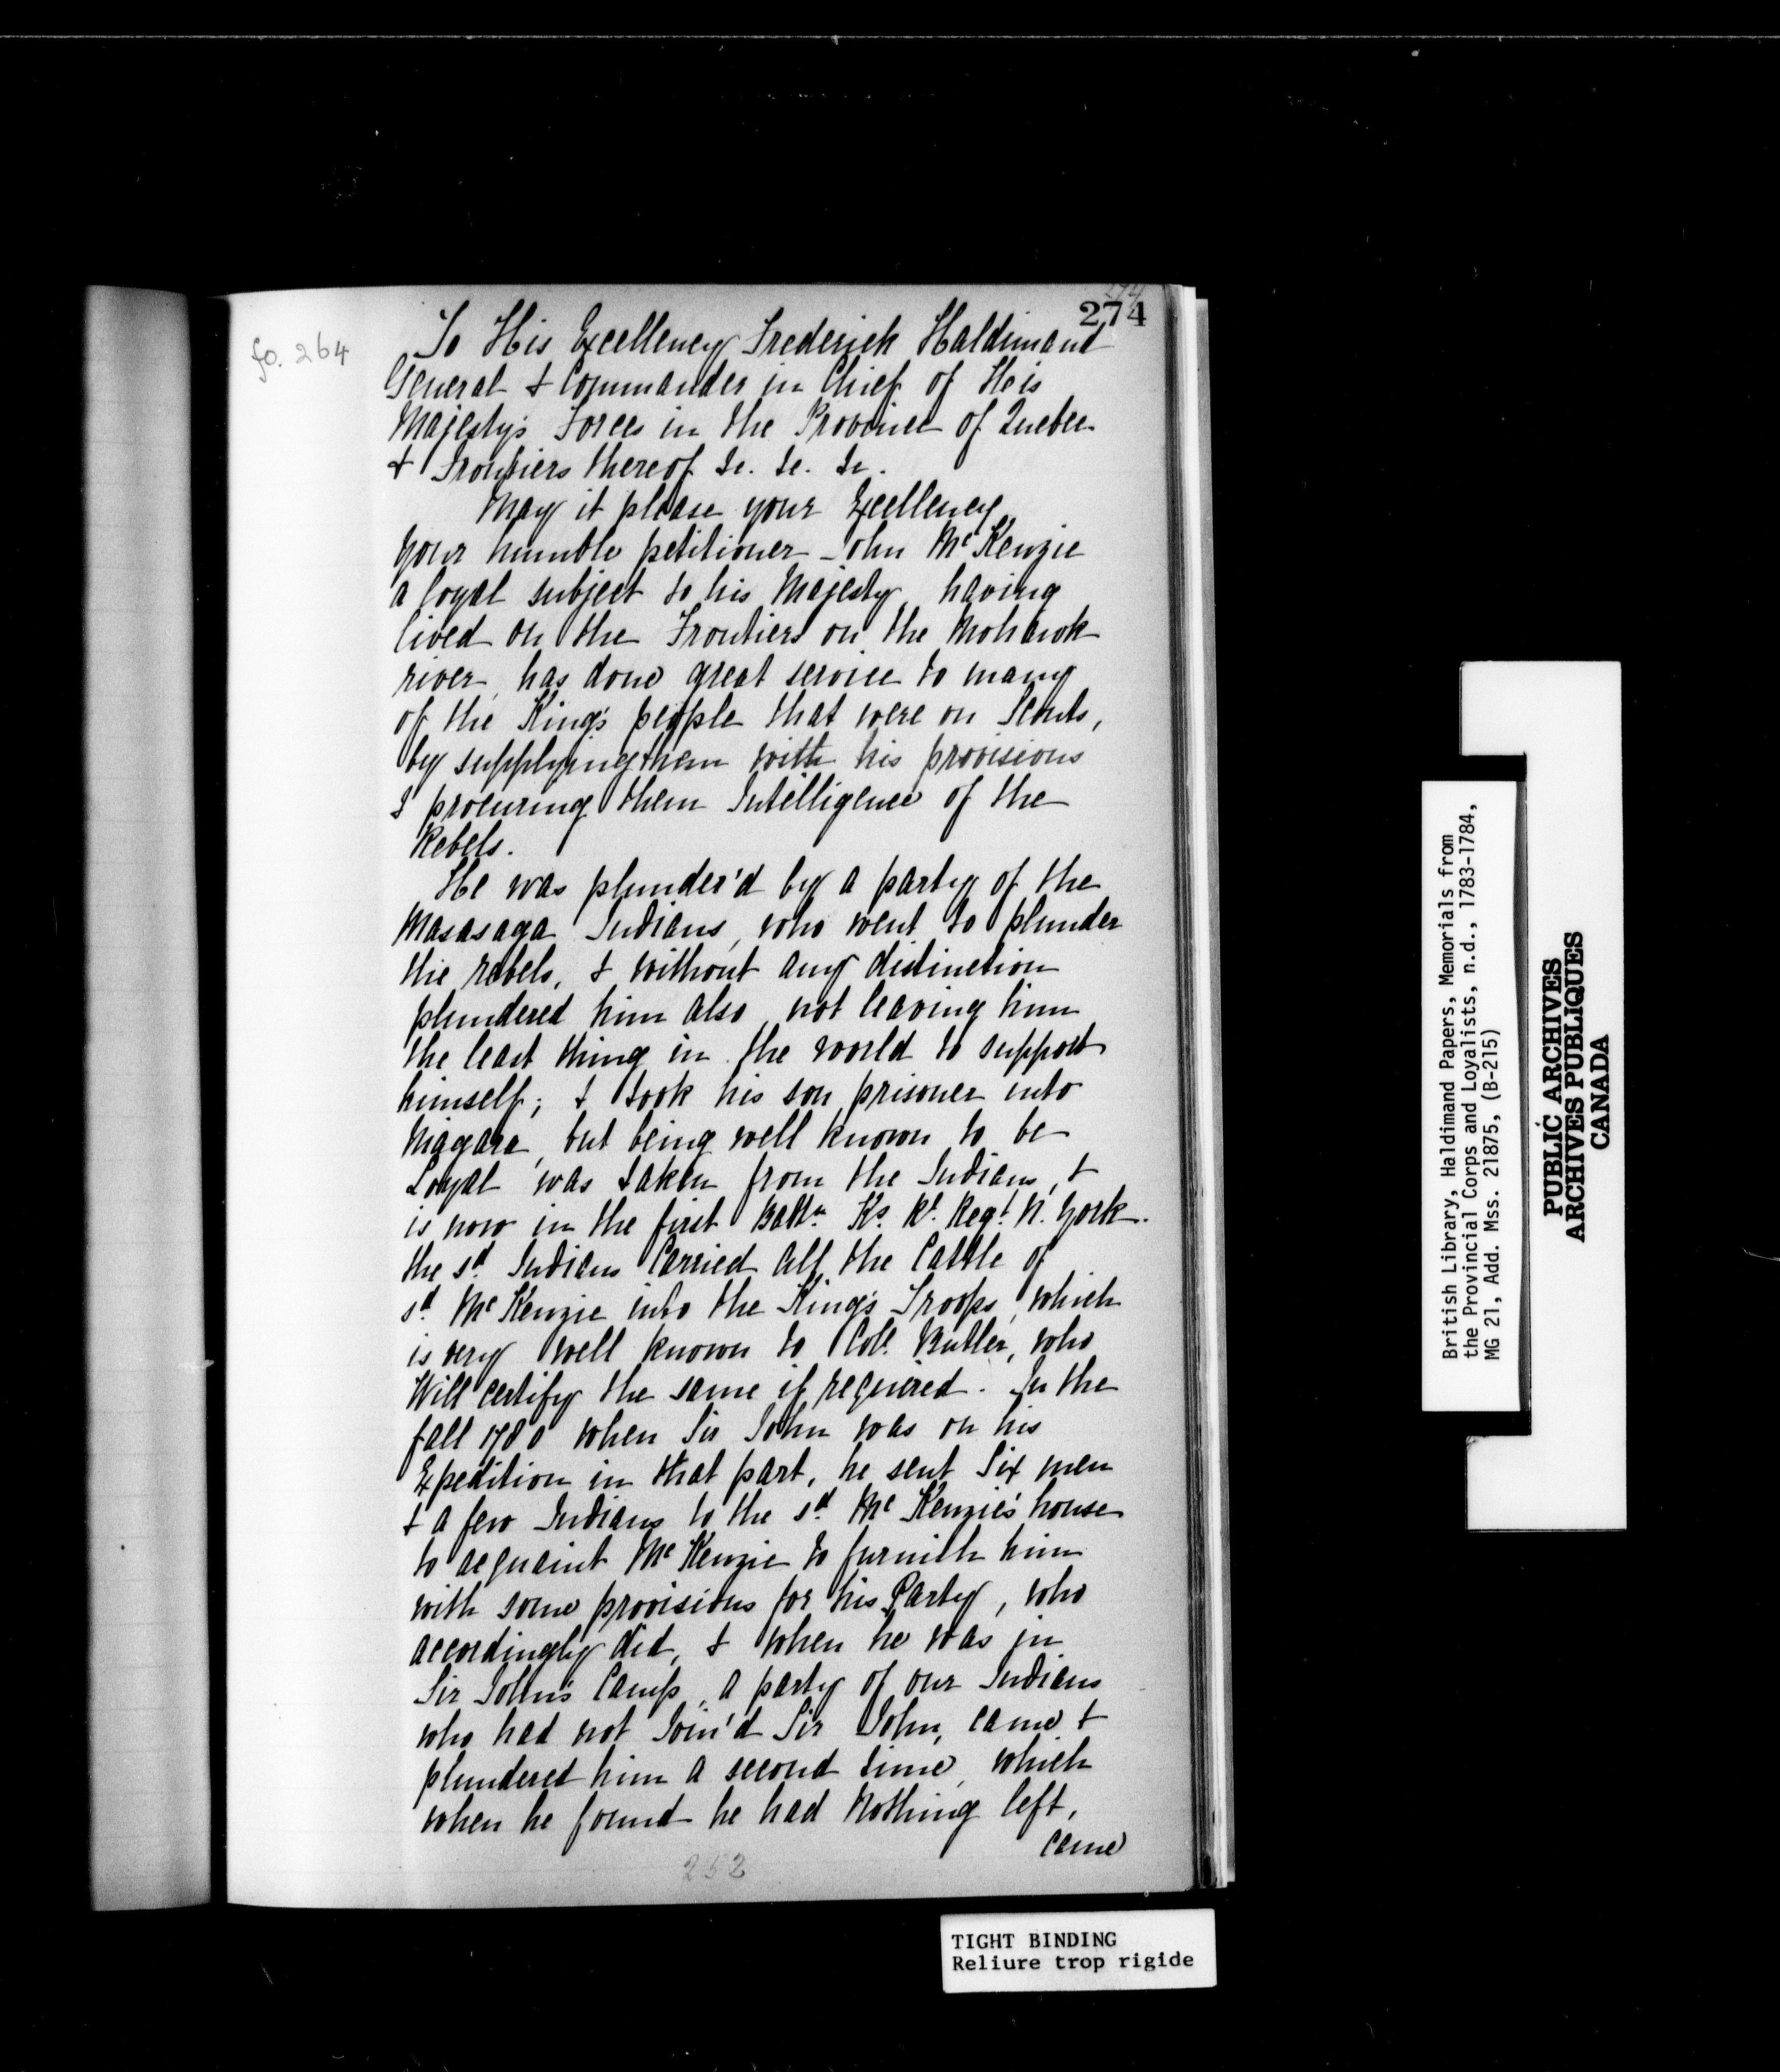 274
274
fo. 264
To His Excellency Frederick Haldimand
General & Commander in Chief of His
Majesty's Forces in the Province of Quebec
& Frontiers thereof &c. &c. &c.
May it please your Excellency
Your humble petitioner John Mc Kenzie
a loyal subject to his Majesty, having
lived on the Frontiers on the Mohawk
river, has done great service to many
of the King's people that were on Scouts,
by supplying them with his provisions
& procuring them Intelligence of the
Rebels.
He was plunder'd by a party of the
Masasaga Indians, who went to plunder
the rebels, & without any distinction
plundered him also, not leaving him
the least thing in the world to support
himself; & took his son prisoner into
Niagara, but being well known to be
Loyal was taken from the Indians, &
is now in the first Battn. Ks. Rl. Regt. N. York.
the sd. Indians Carried all the Cattle of
sd. Mc Kenzie into the King's Troops, which
is very well known to Col. Butler, who
Will certify the same if required. In the
fall 1780 when Sir John was on his
Expedition in that part, he sent Six men
& a few Indians to the sd. Mc Kenzie's house
to acquaint Mc Kenzie to furnish him
with some provisions for his Party, who
accordingly did, & when he was in
Sir John's Camp, a party of our Indians
who had not Join'd Sir John, came &
plundered him a second time, which
when he found he had Nothing left,
came
252
TIGHT BINDING
Reliure trop rigide
British Library, Haldimand Papers, Memorials from
the Provincial Corps and Loyalists, n.d., 1783-1784,
MG 21, Add. Mss. 21875, (B-215)
PUBLIC ARCHIVES
ARCHIVES PUBLIQUES
CANADA